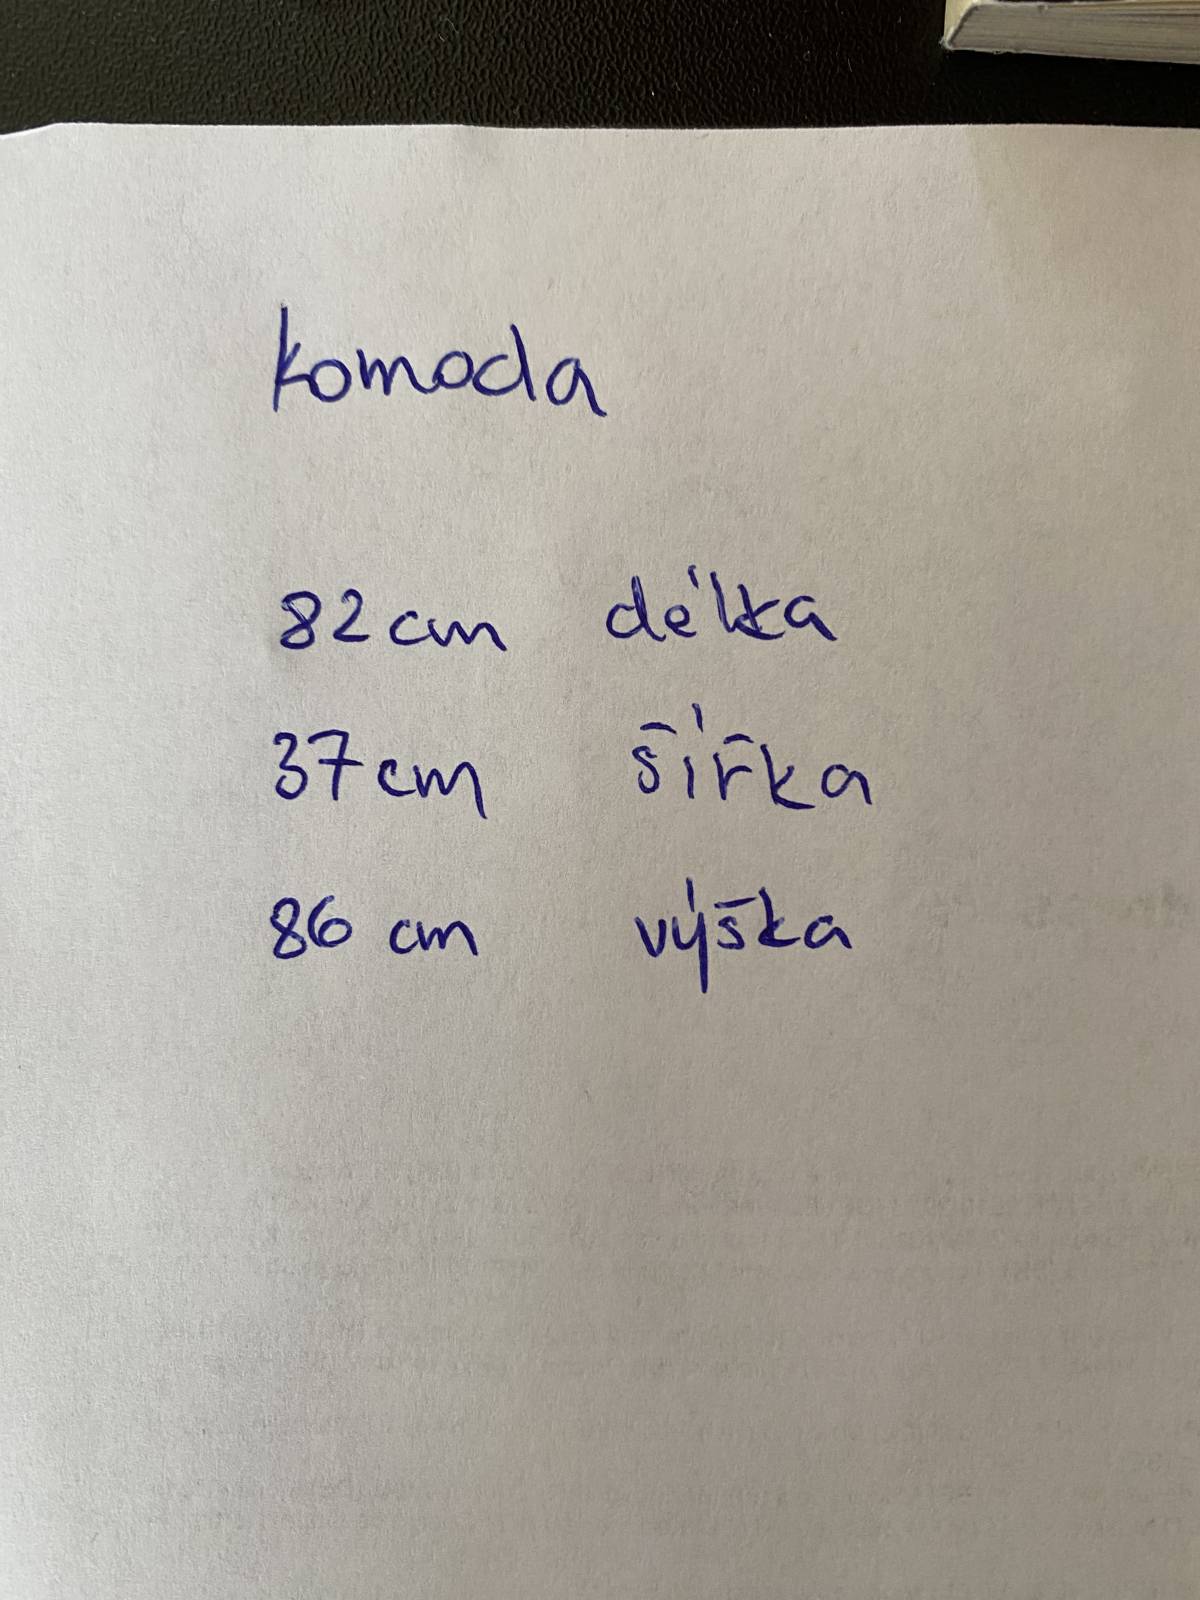 komoda
82 cm délka
37 cm šířka
86 cm výška